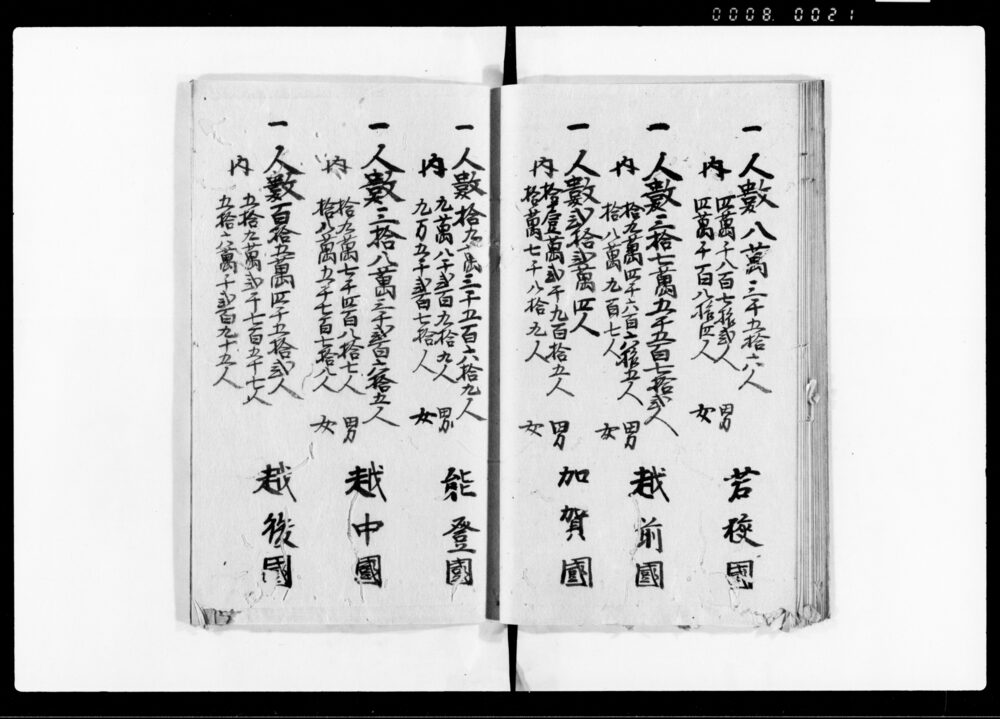 0008. 0021
一人數八萬三千五拾六人 若狹國
内 四萬千八百七拾弐人 男
四萬千百八拾四人 女
一人數三拾七萬五千五百七拾弐人 越前國
内 拾九萬四千六百六拾五人 男
拾八萬九百七人 女
一人數弐拾弐萬四人 加賀國
内 拾壹萬弐千九百拾五人 男
拾萬七千八拾九人 女
一人數拾九萬三千五百六拾九人 能登國
内 九萬八千弐百九拾九人 男
九万五千弐百七拾人 女
一人數三拾八萬三千弐百六拾五人 越中國
内 拾九萬七千四百八拾七人 男
拾八萬五千七百七拾八人 女
一人數百拾五萬四千五拾弐人 越後國
内 五拾九萬弐千七百五十七人
五拾六萬千弐百九十五人